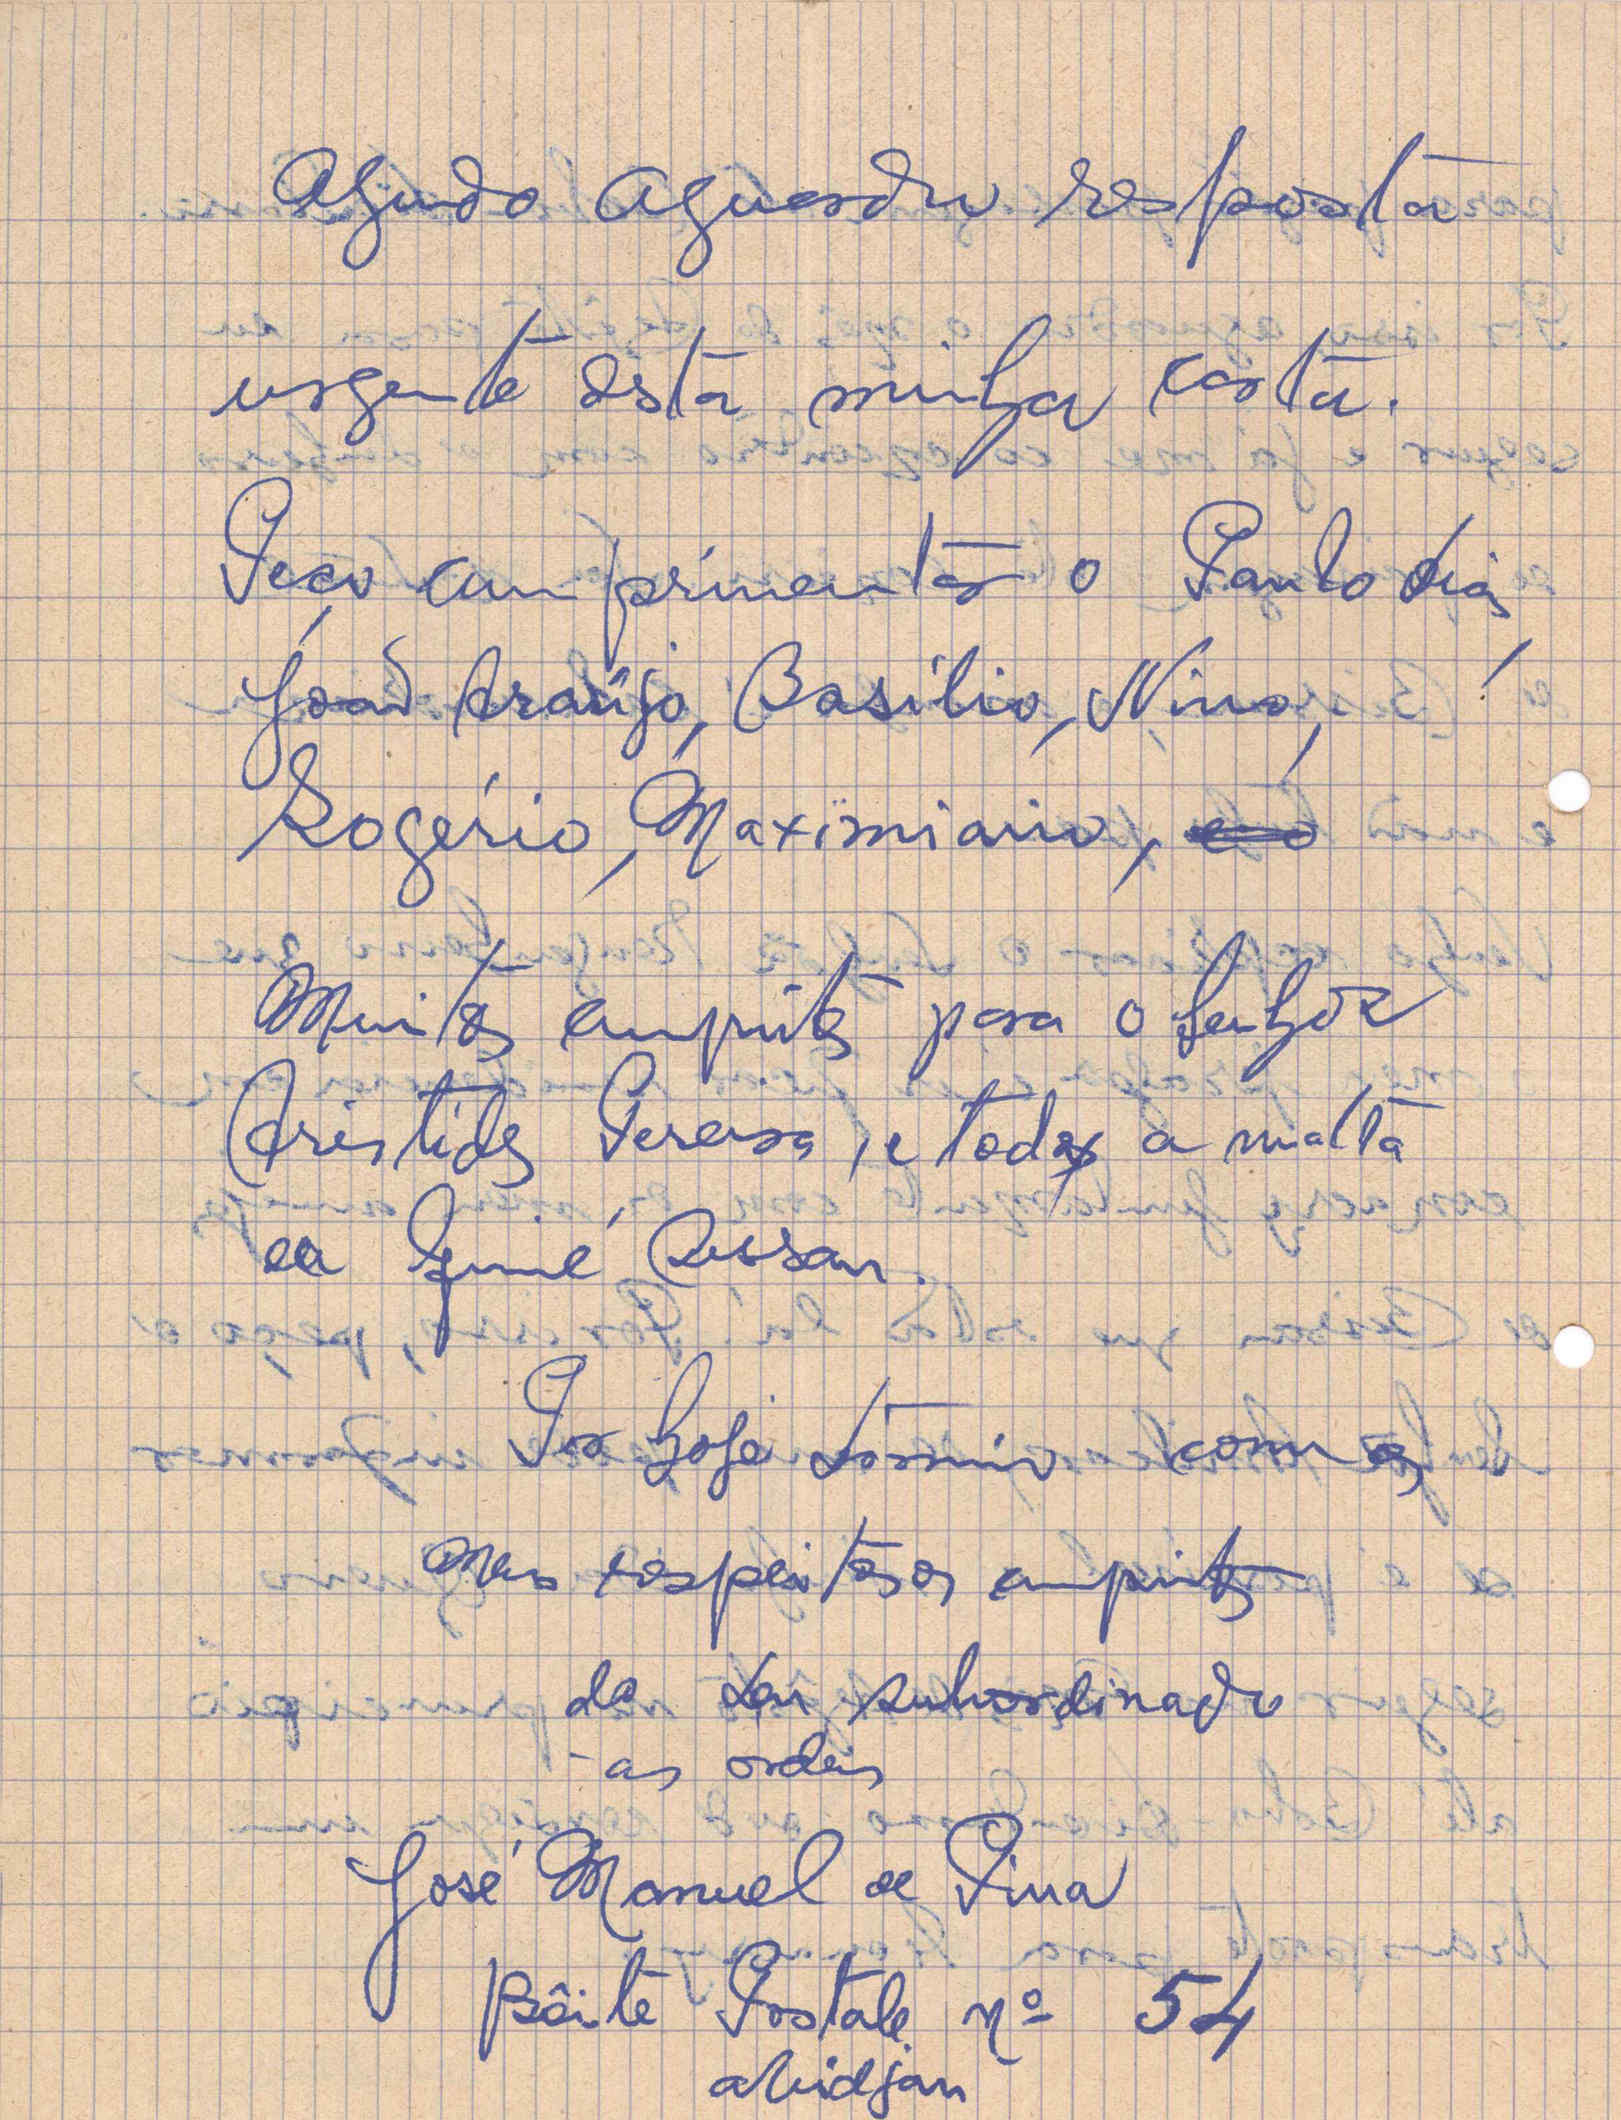 aguardo resposta
urgente desta minha carta.
Peço cumprimentar o Paulo dias,
João Araújo, Basílio, Nino,
Rogério, Maximiano,
Muitos cumptos para o senhor
Aristides Pereira, e toda a malta
da Guiné Bissau.
Por hoje termino com os
meus respeitosos cumptos
do seu subordinado
as ordens
José Manuel de Pina
Bôite Postale nº 54
abidjan